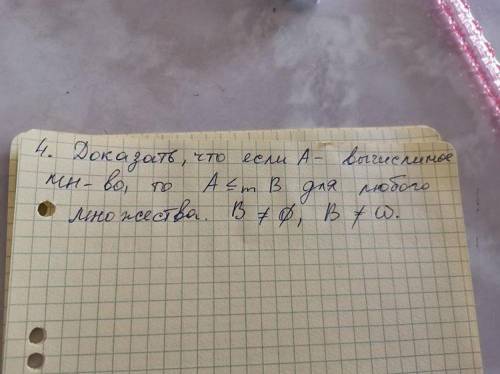 4. Доказать, что если A - вычислимое
мн-во, то A ≤m B для любого
множества. B ≠ ∅, B ≠ ω.